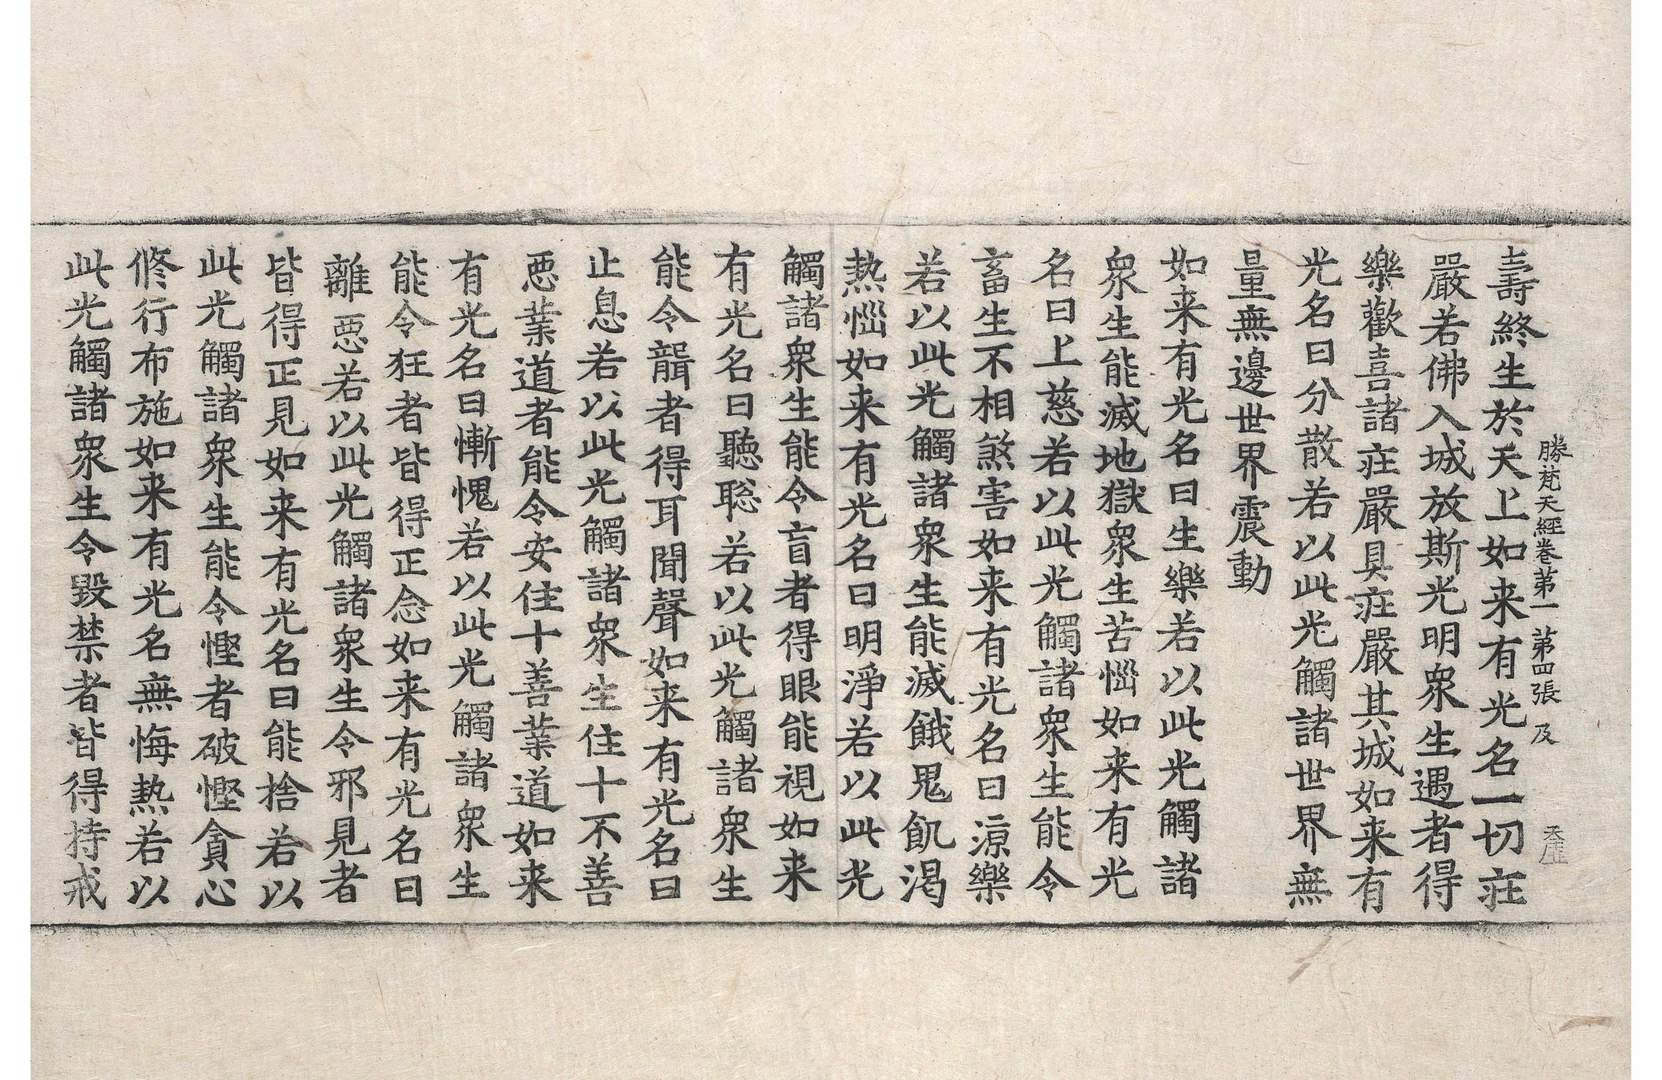 勝梵天經卷第一 第四張 及
壽終生於天上如来有光名一切㽵
嚴若佛入城放斯光明衆生遇者得
樂歡喜諸㽵嚴具㽵嚴其城如来有
光名曰分散若以此光觸諸世界無
量無邊世界震動
如来有光名曰生樂若以此光觸諸
衆生能滅地獄衆生苦惱如来有光
名曰上慈若以此光觸諸衆生能令
畜生不相煞害如来有光名曰涼樂
若以此光觸諸衆生能滅餓鬼飢渴
熱惱如来有光名曰明淨若以此光
觸諸衆生能令盲者得眼能視如来
有光名曰聽聡若以此光觸諸衆生
能令聾者得耳聞聲如来有光名曰
止息若以此光觸諸衆生住十不善
惡業道者能令安住十善業道如来
有光名曰慚愧若以此光觸諸衆生
能令狂者皆得正念如来有光名曰
離惡若以此光觸諸衆生令邪見者
皆得正見如来有光名曰能捨若以
此光觸諸衆生能令慳者破慳貪心
修行布施如来有光名無悔熱若以
此光觸諸衆生令毀禁者皆得持戒